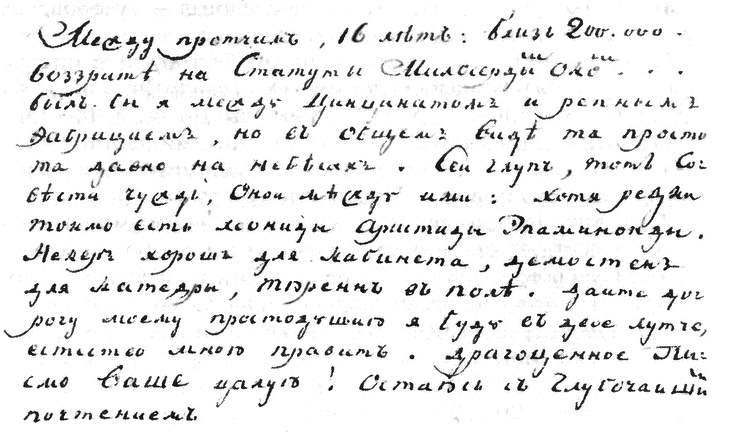 Между протчимъ, 16 лѣтъ: близь 200.000.
воззритѣ на Статуты Милосердій Око...
былъ бы я между Цинцинатомъ и репнымъ
Фабрициемъ, но въ общемъ видѣ та просто
та давно на небѣсахъ. Сей глупъ, тотъ Со-
вѣсти чуждъ, оной мѣжду ими: хотя редки
токмо есть леониды Аристиды Эпаминонды.
Некеръ хорошъ для кабинета, демостенъ
для катедры, Тюреннъ въ полѣ. дайте до-
рогу моему простодушию я буду въ двое лутче,
естество мною правитъ. драгоценное Пи-
смо Ваше цалую! Остаюсь съ глубочайшій
почтениемъ